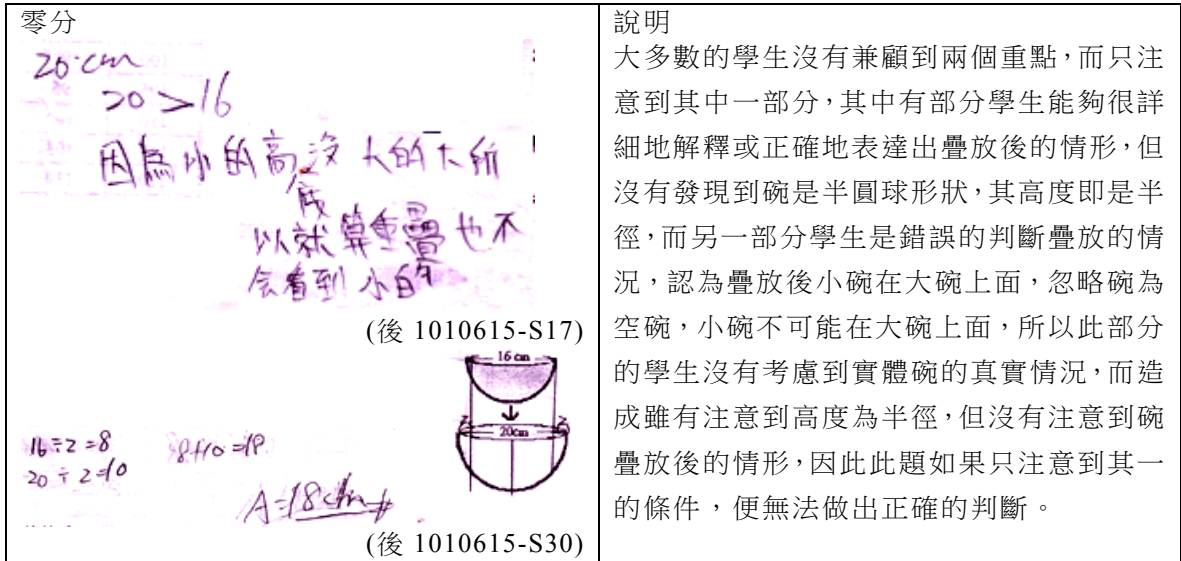 零分
20cm
20>16
因為小的高沒大的大所
度
以就算重疊也不
会看到小的
(後 1010615-S17)
16 cm
20cm
16÷2=8
8+10=18
20÷2=10
A=18cm
(後 1010615-S30)
說明
大多數的學生沒有兼顧到兩個重點,而只注
意到其中一部分,其中有部分學生能夠很詳
細地解釋或正確地表達出疊放後的情形,但
沒有發現到碗是半圓球形狀,其高度即是半
徑,而另一部分學生是錯誤的判斷疊放的情
況,認為疊放後小碗在大碗上面,忽略碗為
空碗,小碗不可能在大碗上面,所以此部分
的學生沒有考慮到實體碗的真實情況,而造
成雖有注意到高度為半徑,但沒有注意到碗
疊放後的情形,因此此題如果只注意到其一
的條件,便無法做出正確的判斷。